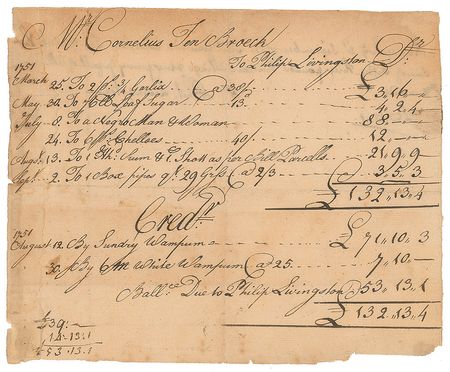 Mr. Cornelius Ten Broeck
To Philip Livingston Dr
1751
March 25. To 2 ps. 3/4 Garlix @ 30/ £ 3,, 16 —
May 22. To Loaf Sugar 13. 4,, 2,, 4
July 8 To a Negro Man & Woman 88 — —
24. To 6 ps. Chelloes 40/. 12,, —
Augst. 13. To 1 Hhd. Rum & as per Bill Parcells. 21,, 9,, 9
Sepr. 2. To 1 Box pipes qt. 29 Gross @ 2/3 3,, 5,, 3
£ 132,, 13,, 4
Credr.
1751
August 12. By Sundry Wampum £ 71,, 10,, 3
30. By White Wampum @ 25. 7,, 10 —
Ballce. Due to Philip Livingston 53,, 13,, 1
£ 132,, 13,, 4
£39:—
14.13:1
£53.13.1